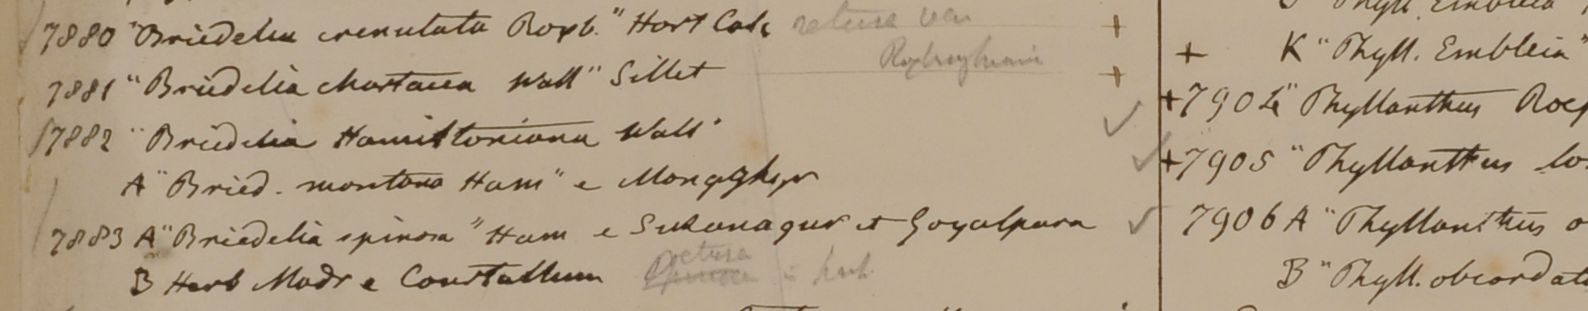 7880 "Briedelia crenulata Roxb." Hort Calc retusa var
Roxburghiana
7881 "Briedelia chartacea Wall" Sillet
7882 "Briedelia Hamiltoniana Wall"
A "Bried. montana Ham" e Monghyr
7883 A "Briedelia spinosa" Ham e Sukanagur et Goyalpara
B Herb Madr e Courtallum retusa in herb.
+ K "Phyll. Emblica"
+ 7904 "Phyllanthus
+ 7905 "Phyllanthus
7906 A "Phyllanthus
B "Phyll. obcordat